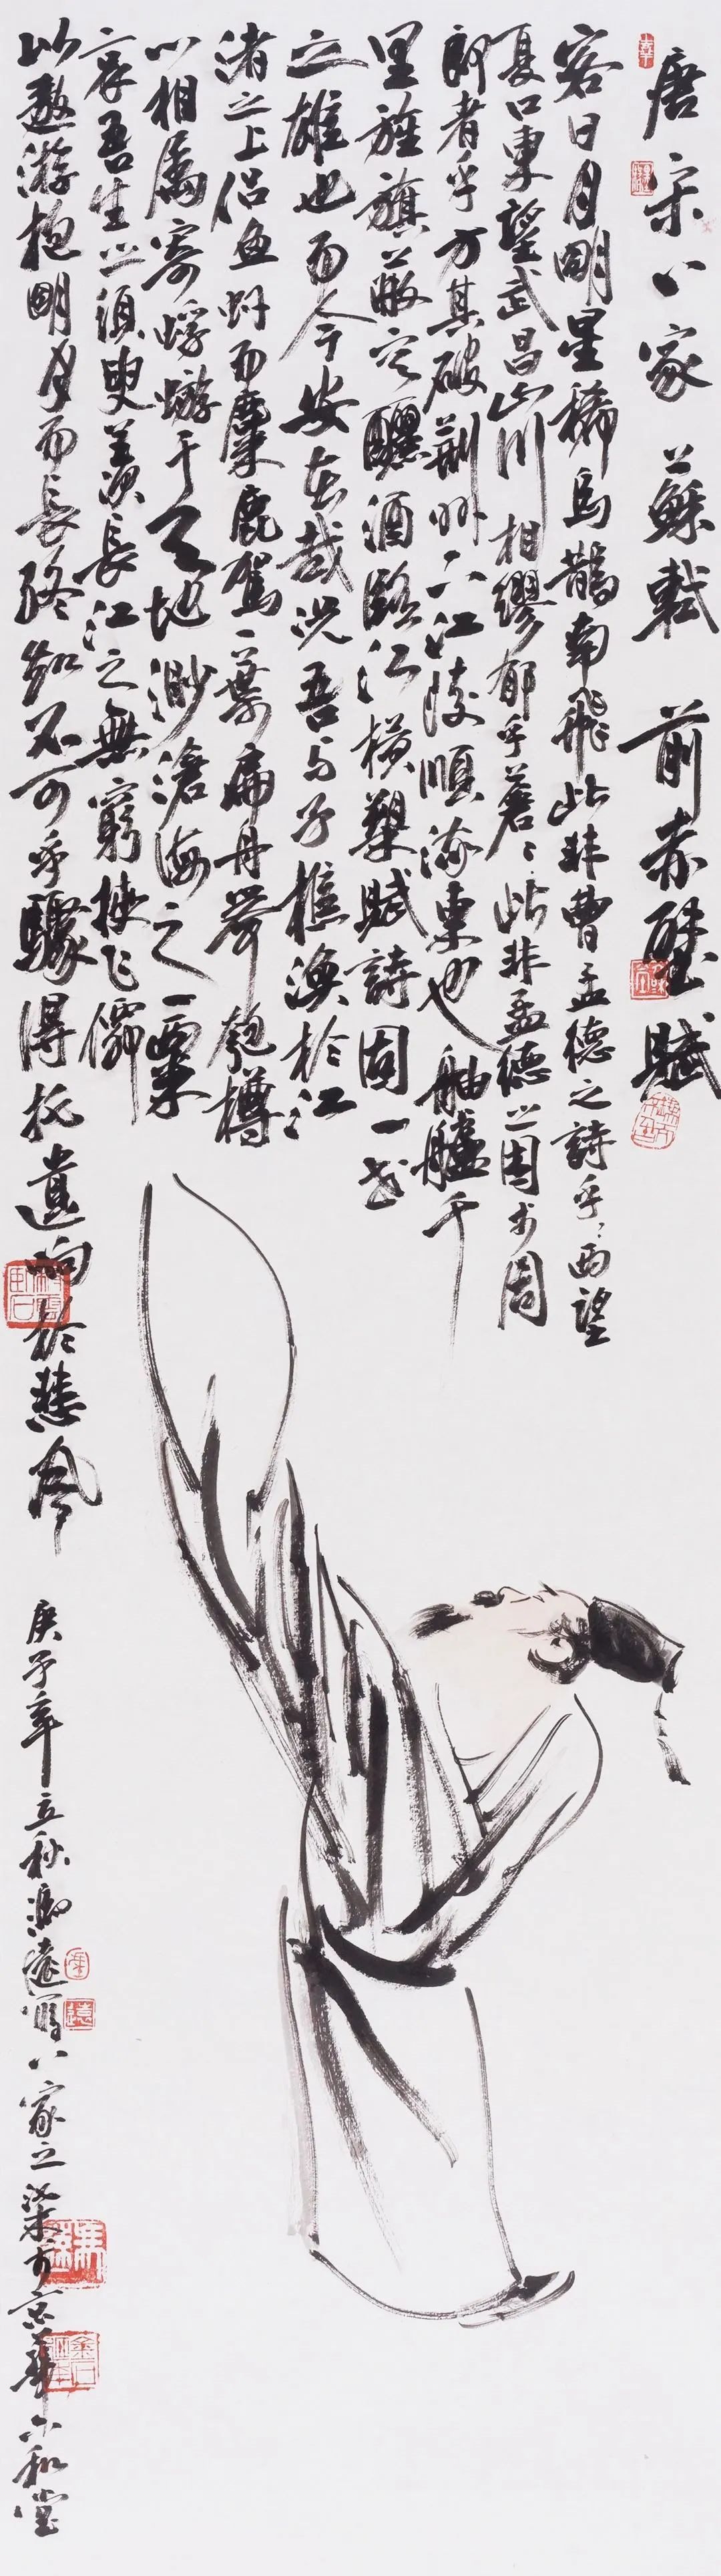 唐宋八家之蘇軾 前赤壁賦
客曰月明星稀烏鵲南飛此非曹孟德之詩乎西望
夏口東望武昌山川相繆郁乎蒼々此非孟德之困於周
郎者乎方其破荊州下江陵順流東也舳艫千
里旌旗蔽空釃酒臨江橫槊賦詩固一世
之雄也而今安在哉況吾与子樵漁於江
渚之上侶魚虾而麋鹿駕一葉扁舟舉匏樽
以相屬寄蜉蝣于天地渺滄海之一粟
哀吾生之須臾羨長江之無窮挾飞僊
以遨游抱明月而長終知不可乎驟得托遺响於悲風
庚子年立秋 遠寫八家之柒於京華六和堂